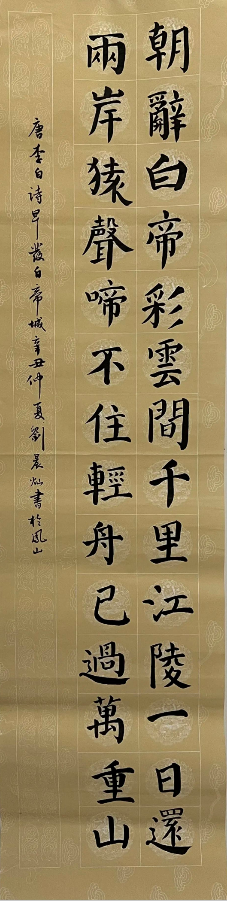 朝辭白帝彩雲間千里江陵一日還
兩岸猿聲啼不住輕舟已過萬重山
唐李白詩早發白帝城辛丑仲夏劉晨灿書於鳳山